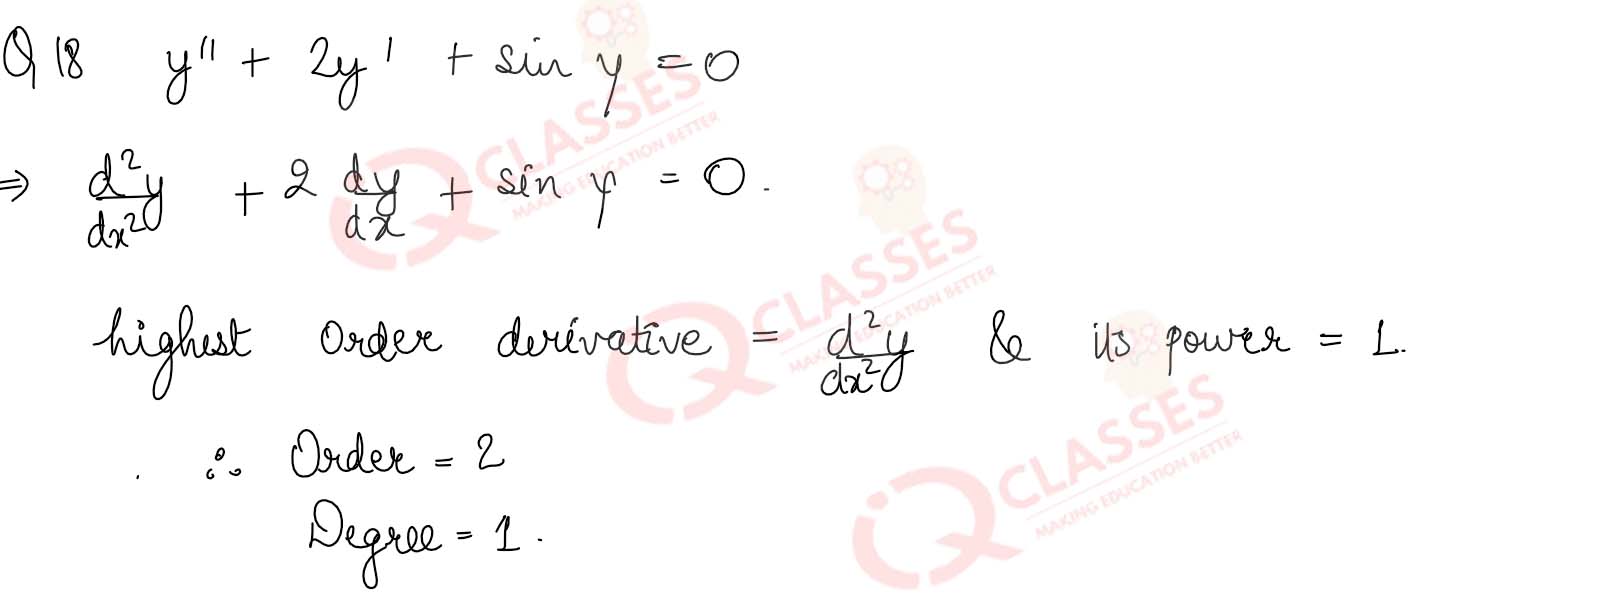 Q 18 y'' + 2y' + sin y = 0
⇒ d²y/dx² + 2 dy/dx + sin y = 0.
highest order derivative = d²y/dx² & its power = 1.
∴ Order = 2
Degree = 1.
CLASSES
MAKING EDUCATION BETTER
CLASSES
MAKING EDUCATION BETTER
CLASSES
MAKING EDUCATION BETTER